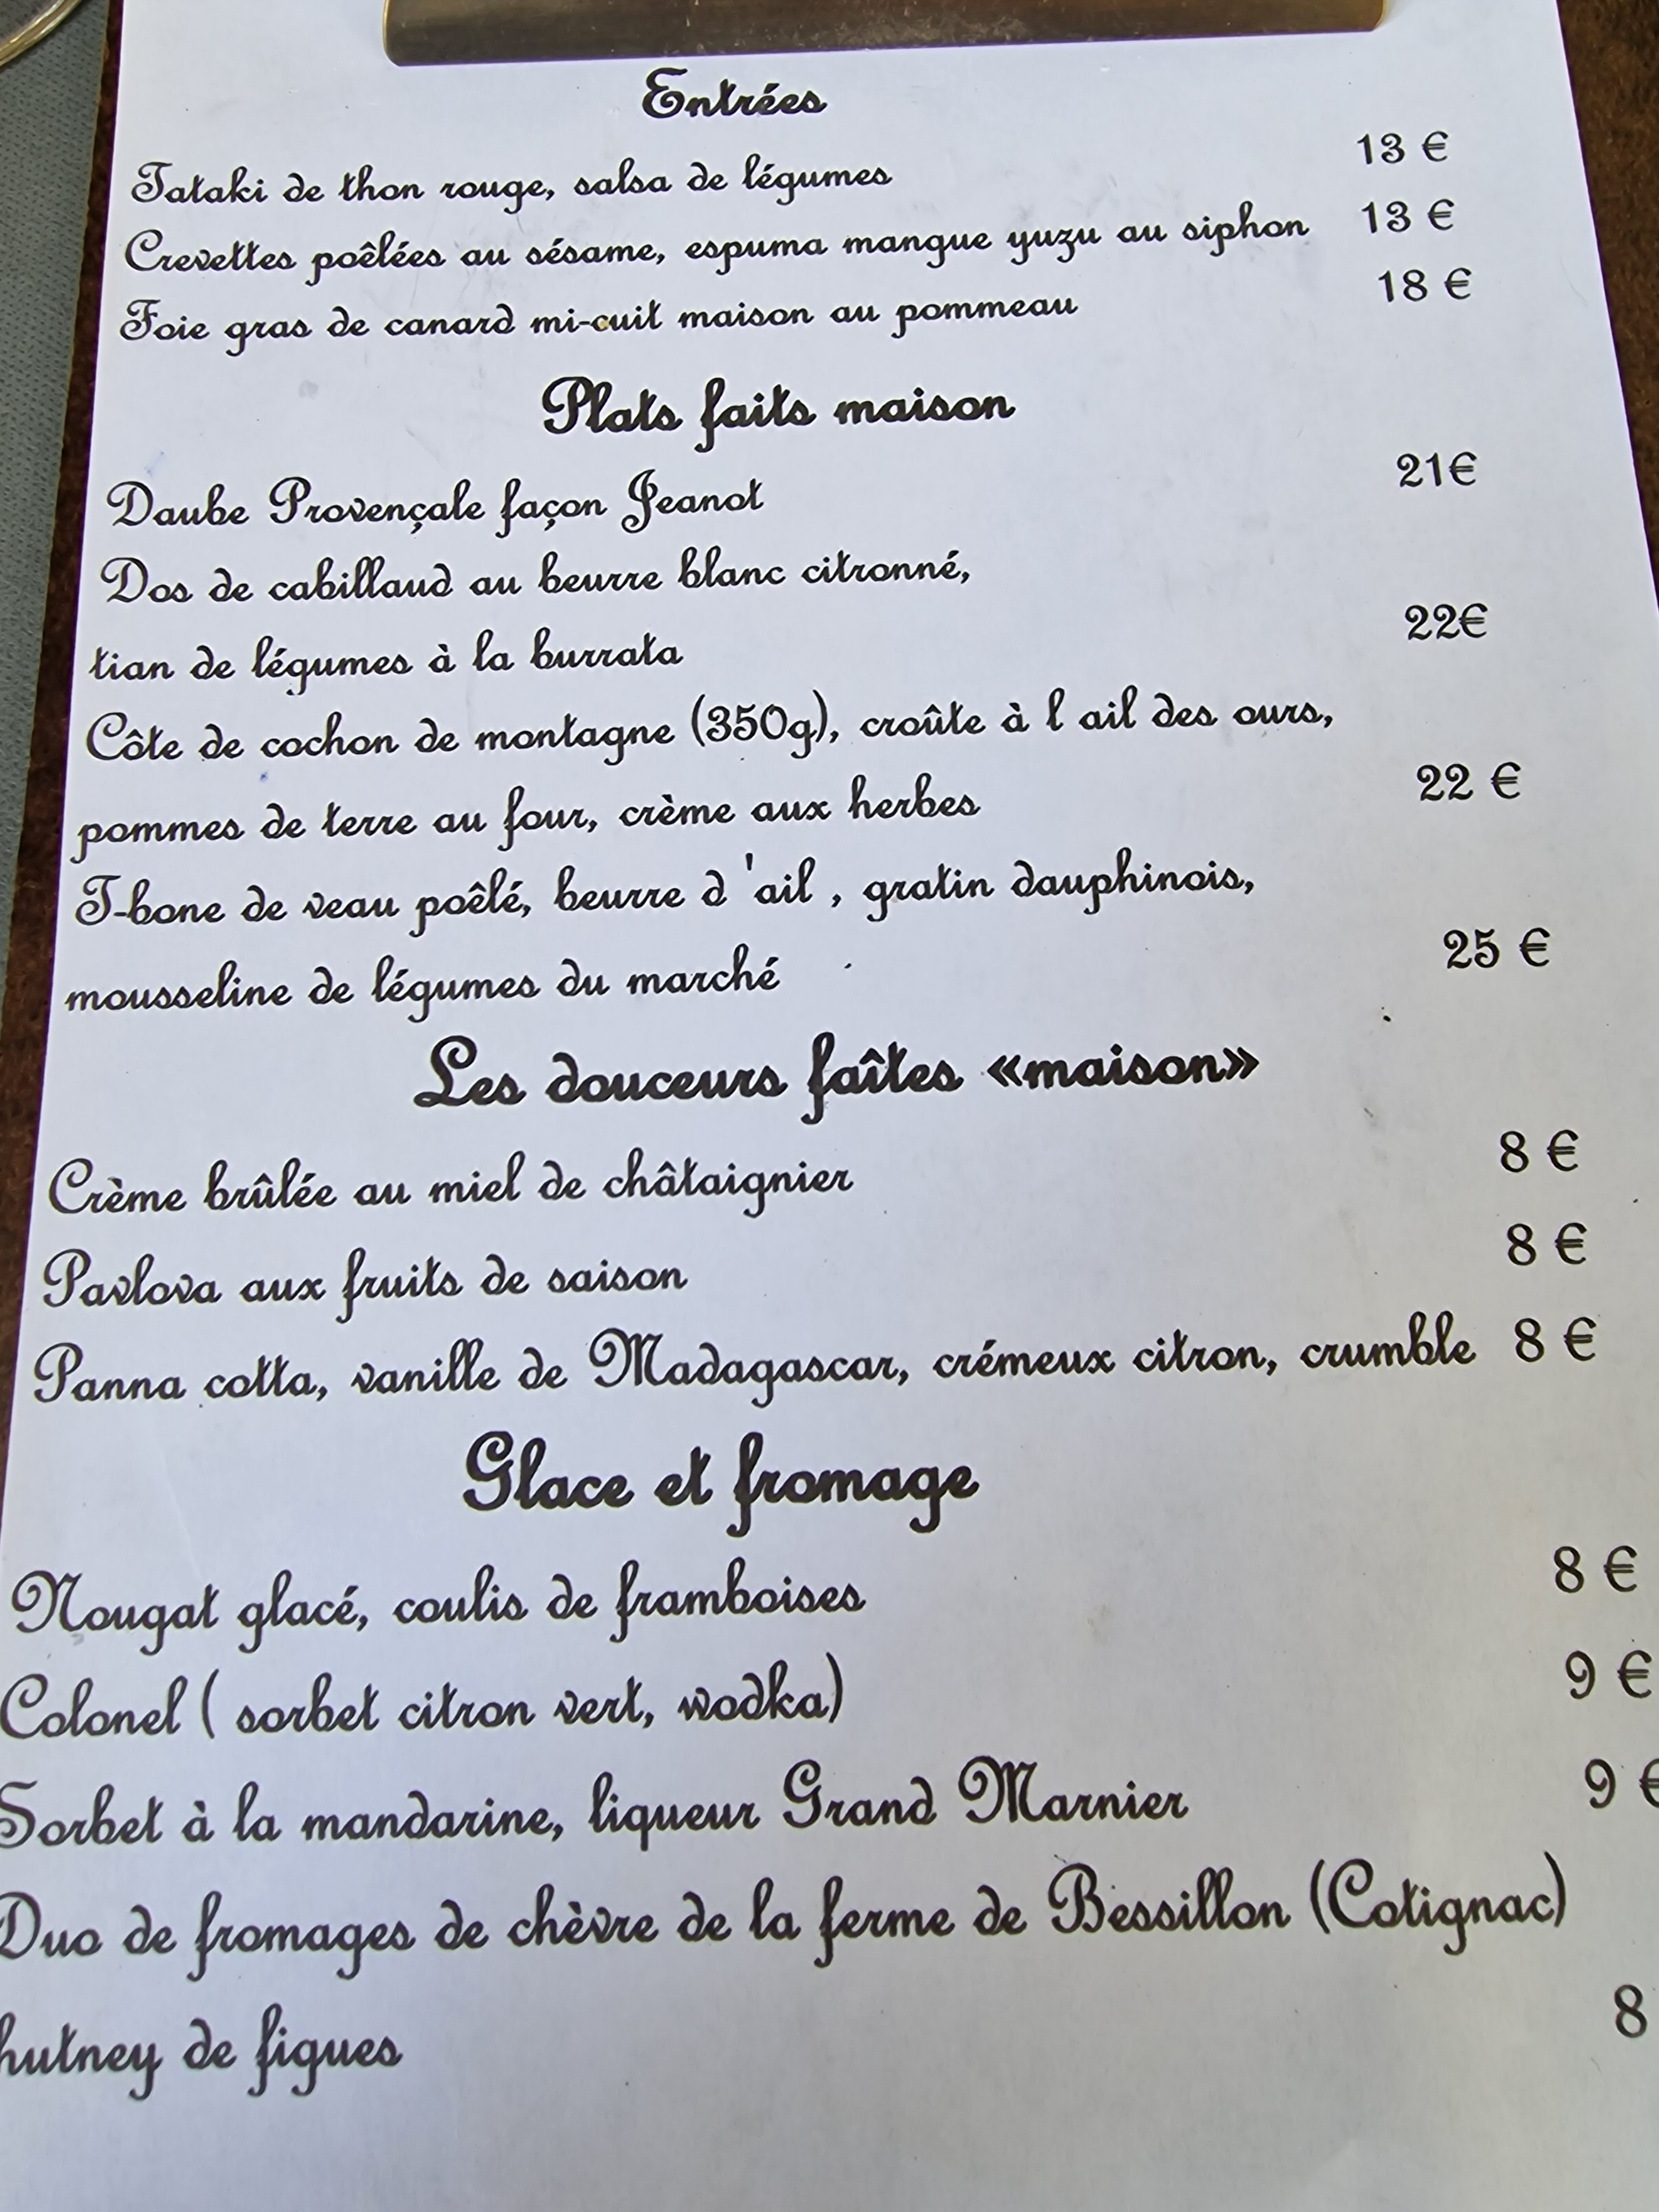 Entrées
Tataki de thon rouge, salsa de légumes 13 €
Crevettes poêlées au sésame, espuma mangue yuzu au siphon 13 €
Foie gras de canard mi-cuit maison au pommeau 18 €
Plats faits maison
Daube Provençale façon Jeanot 21€
Dos de cabillaud au beurre blanc citronné,
tian de légumes à la burrata 22€
Côte de cochon de montagne (350g), croûte à l ail des ours,
pommes de terre au four, crème aux herbes 22 €
T-bone de veau poêlé, beurre d 'ail , gratin dauphinois,
mousseline de légumes du marché 25 €
Les douceurs faîtes «maison»
Crème brûlée au miel de châtaignier 8 €
Pavlova aux fruits de saison 8 €
Panna cotta, vanille de Madagascar, crémeux citron, crumble 8 €
Glace et fromage
Nougat glacé, coulis de framboises 8 €
Colonel ( sorbet citron vert, wodka) 9 €
Sorbet à la mandarine, liqueur Grand Marnier 9 €
Duo de fromages de chèvre de la ferme de Bessillon (Cotignac)
hutney de figues 8